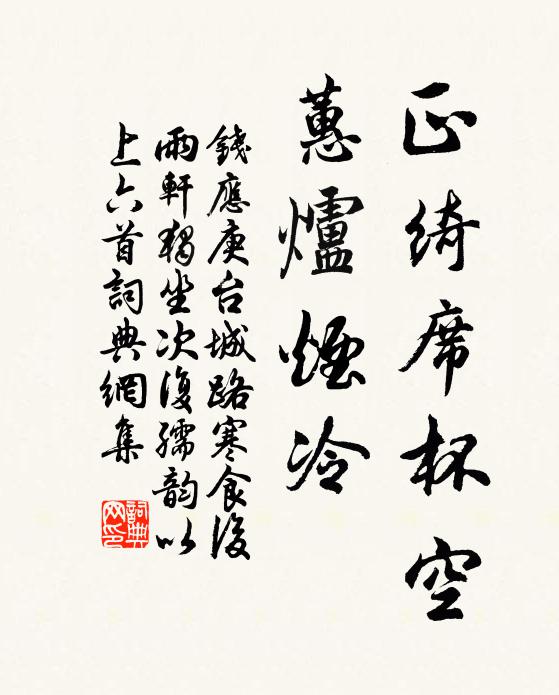 正綺席杯空
蕙爐煙冷
錢應庚台城路寒食後
雨軒獨坐次復孺韵以
上六首詞典網集
詞典
网印